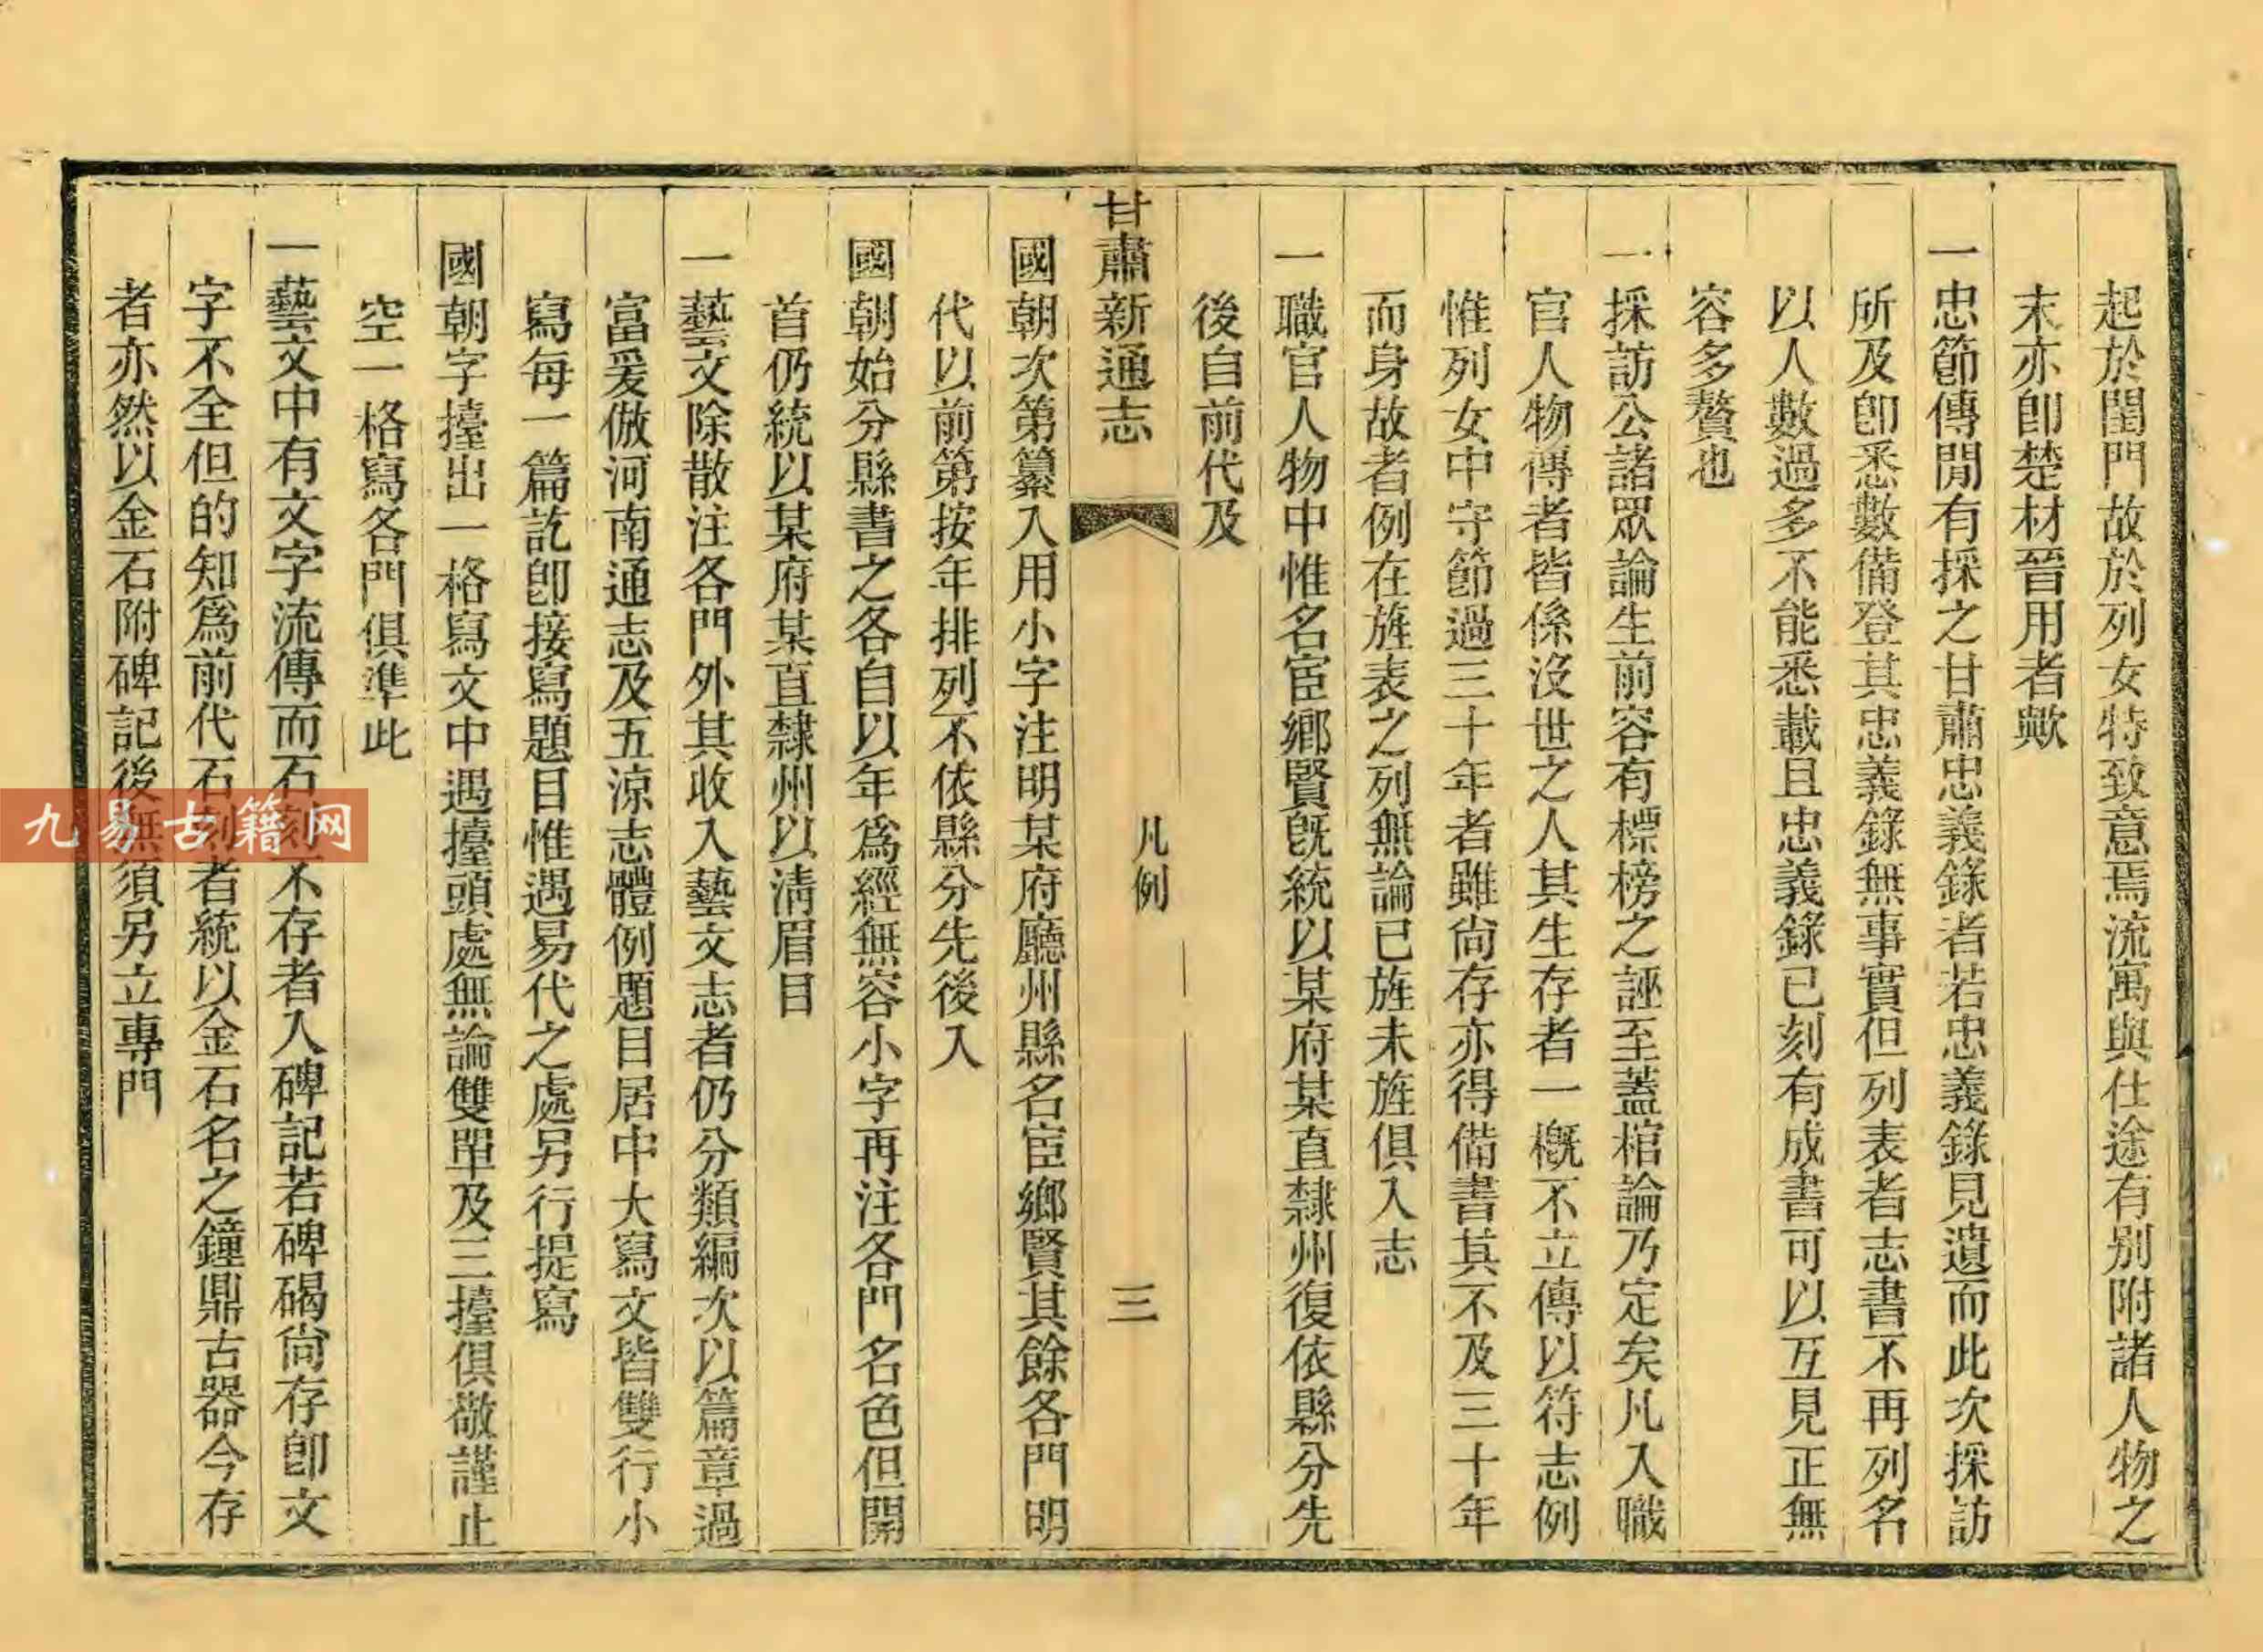 起於閨門故於列女特致意焉流寓與仕途有別附諸人物之
末亦卽楚材晉用者歟
一忠節傳閒有採之甘肅忠義錄者若忠義錄見遺而此次採訪
所及卽悉數備登其忠義錄無事實但列表者志書不再列名
以人數過多不能悉載且忠義錄已刻有成書可以互見正無
容多贅也
一採訪公諸眾論生前容有標榜之誣至蓋棺論乃定矣凡入職
官人物傳者皆係沒世之人其生存者一概不立傳以符志例
惟列女中守節過三十年者雖尙存亦得備書其不及三十年
而身故者例在旌表之列無論已旌未旌俱入志
一職官人物中惟名宦鄉賢旣統以某府某直隸州復依縣分先
後自前代及
甘肅新通志
凡例
三
國朝次第纂入用小字注明某府廳州縣名宦鄉賢其餘各門明
代以前第按年排列不依縣分先後入
國朝始分縣書之各自以年爲經無容小字再注各門名色但開
首仍統以某府某直隸州以淸眉目
一藝文除散注各門外其收入藝文志者仍分類編次以篇章過
富爰倣河南通志及五涼志體例題目居中大寫文皆雙行小
寫每一篇訖卽接寫題目惟遇易代之處另行提寫
國朝字擡出一格寫文中遇擡頭處無論雙單及三擡俱敬謹止
空一格寫各門俱準此
一藝文中有文字流傳而石刻不存者入碑記若碑碣尙存卽文
字不全但的知爲前代石刻者統以金石名之鐘鼎古器今存
者亦然以金石附碑記後無須另立專門
九易古籍网